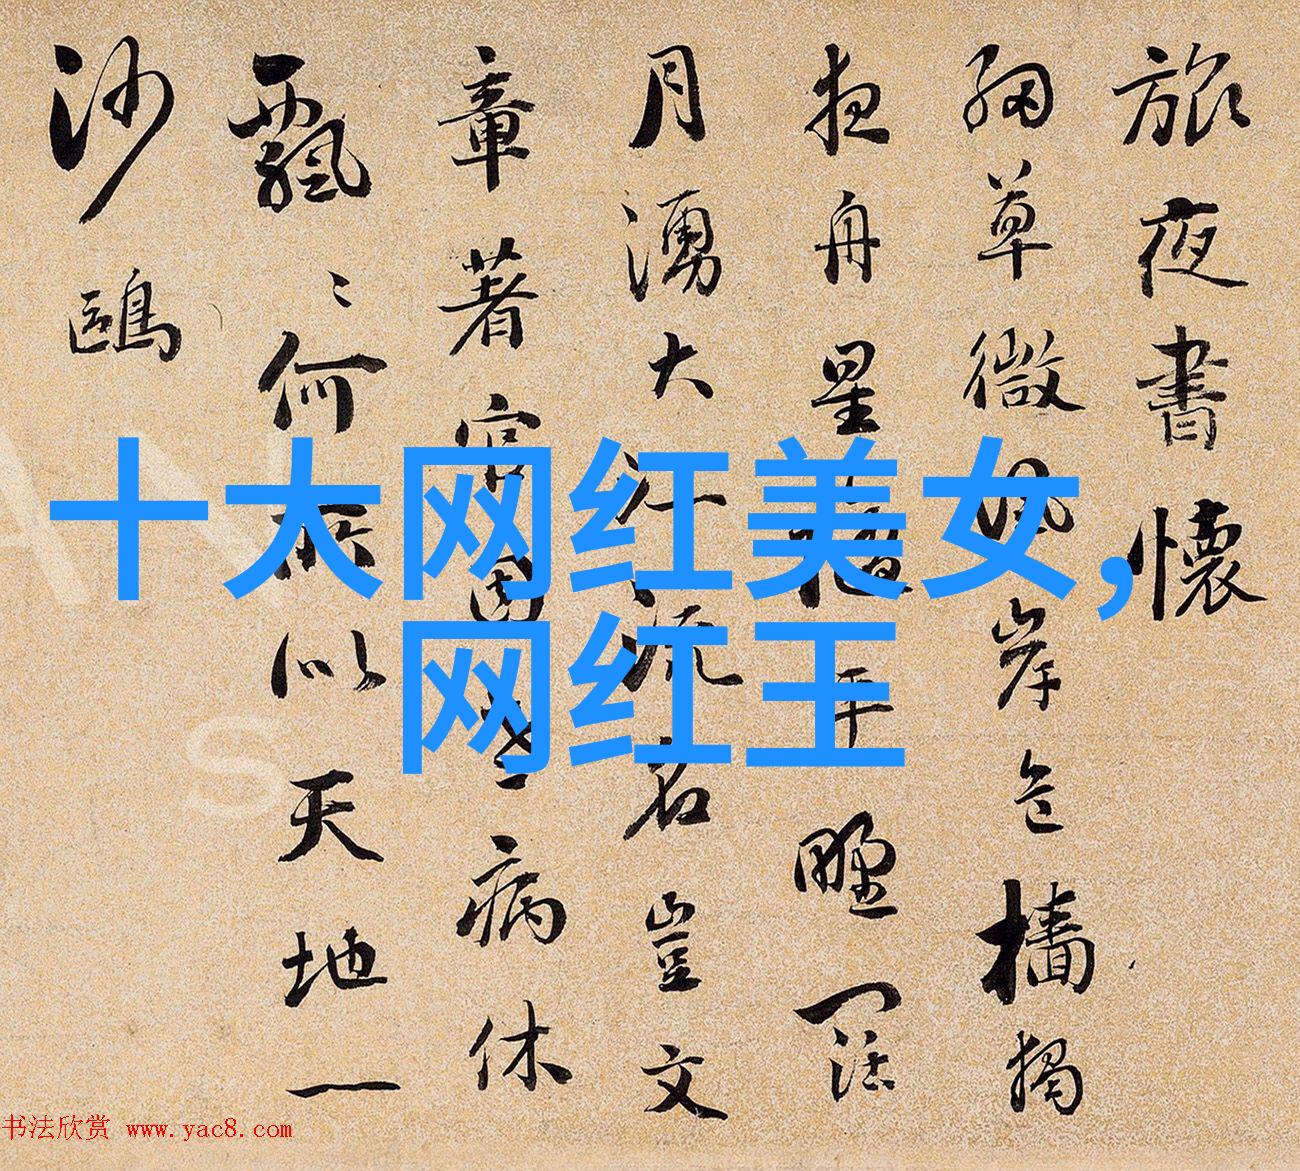 旅夜書懷
細草微風岸危檣獨
夜舟星平野闊
月湧大江流名豈文
章著官因老病休
飄〻何所似天地一
沙鷗
十大网红美女,
网红王
书法欣赏 www.yac8.com